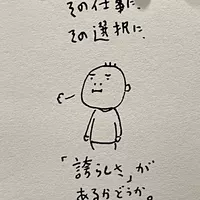 その仕事に、
その選択に、
「誇らしさ」が
あるかどうか。